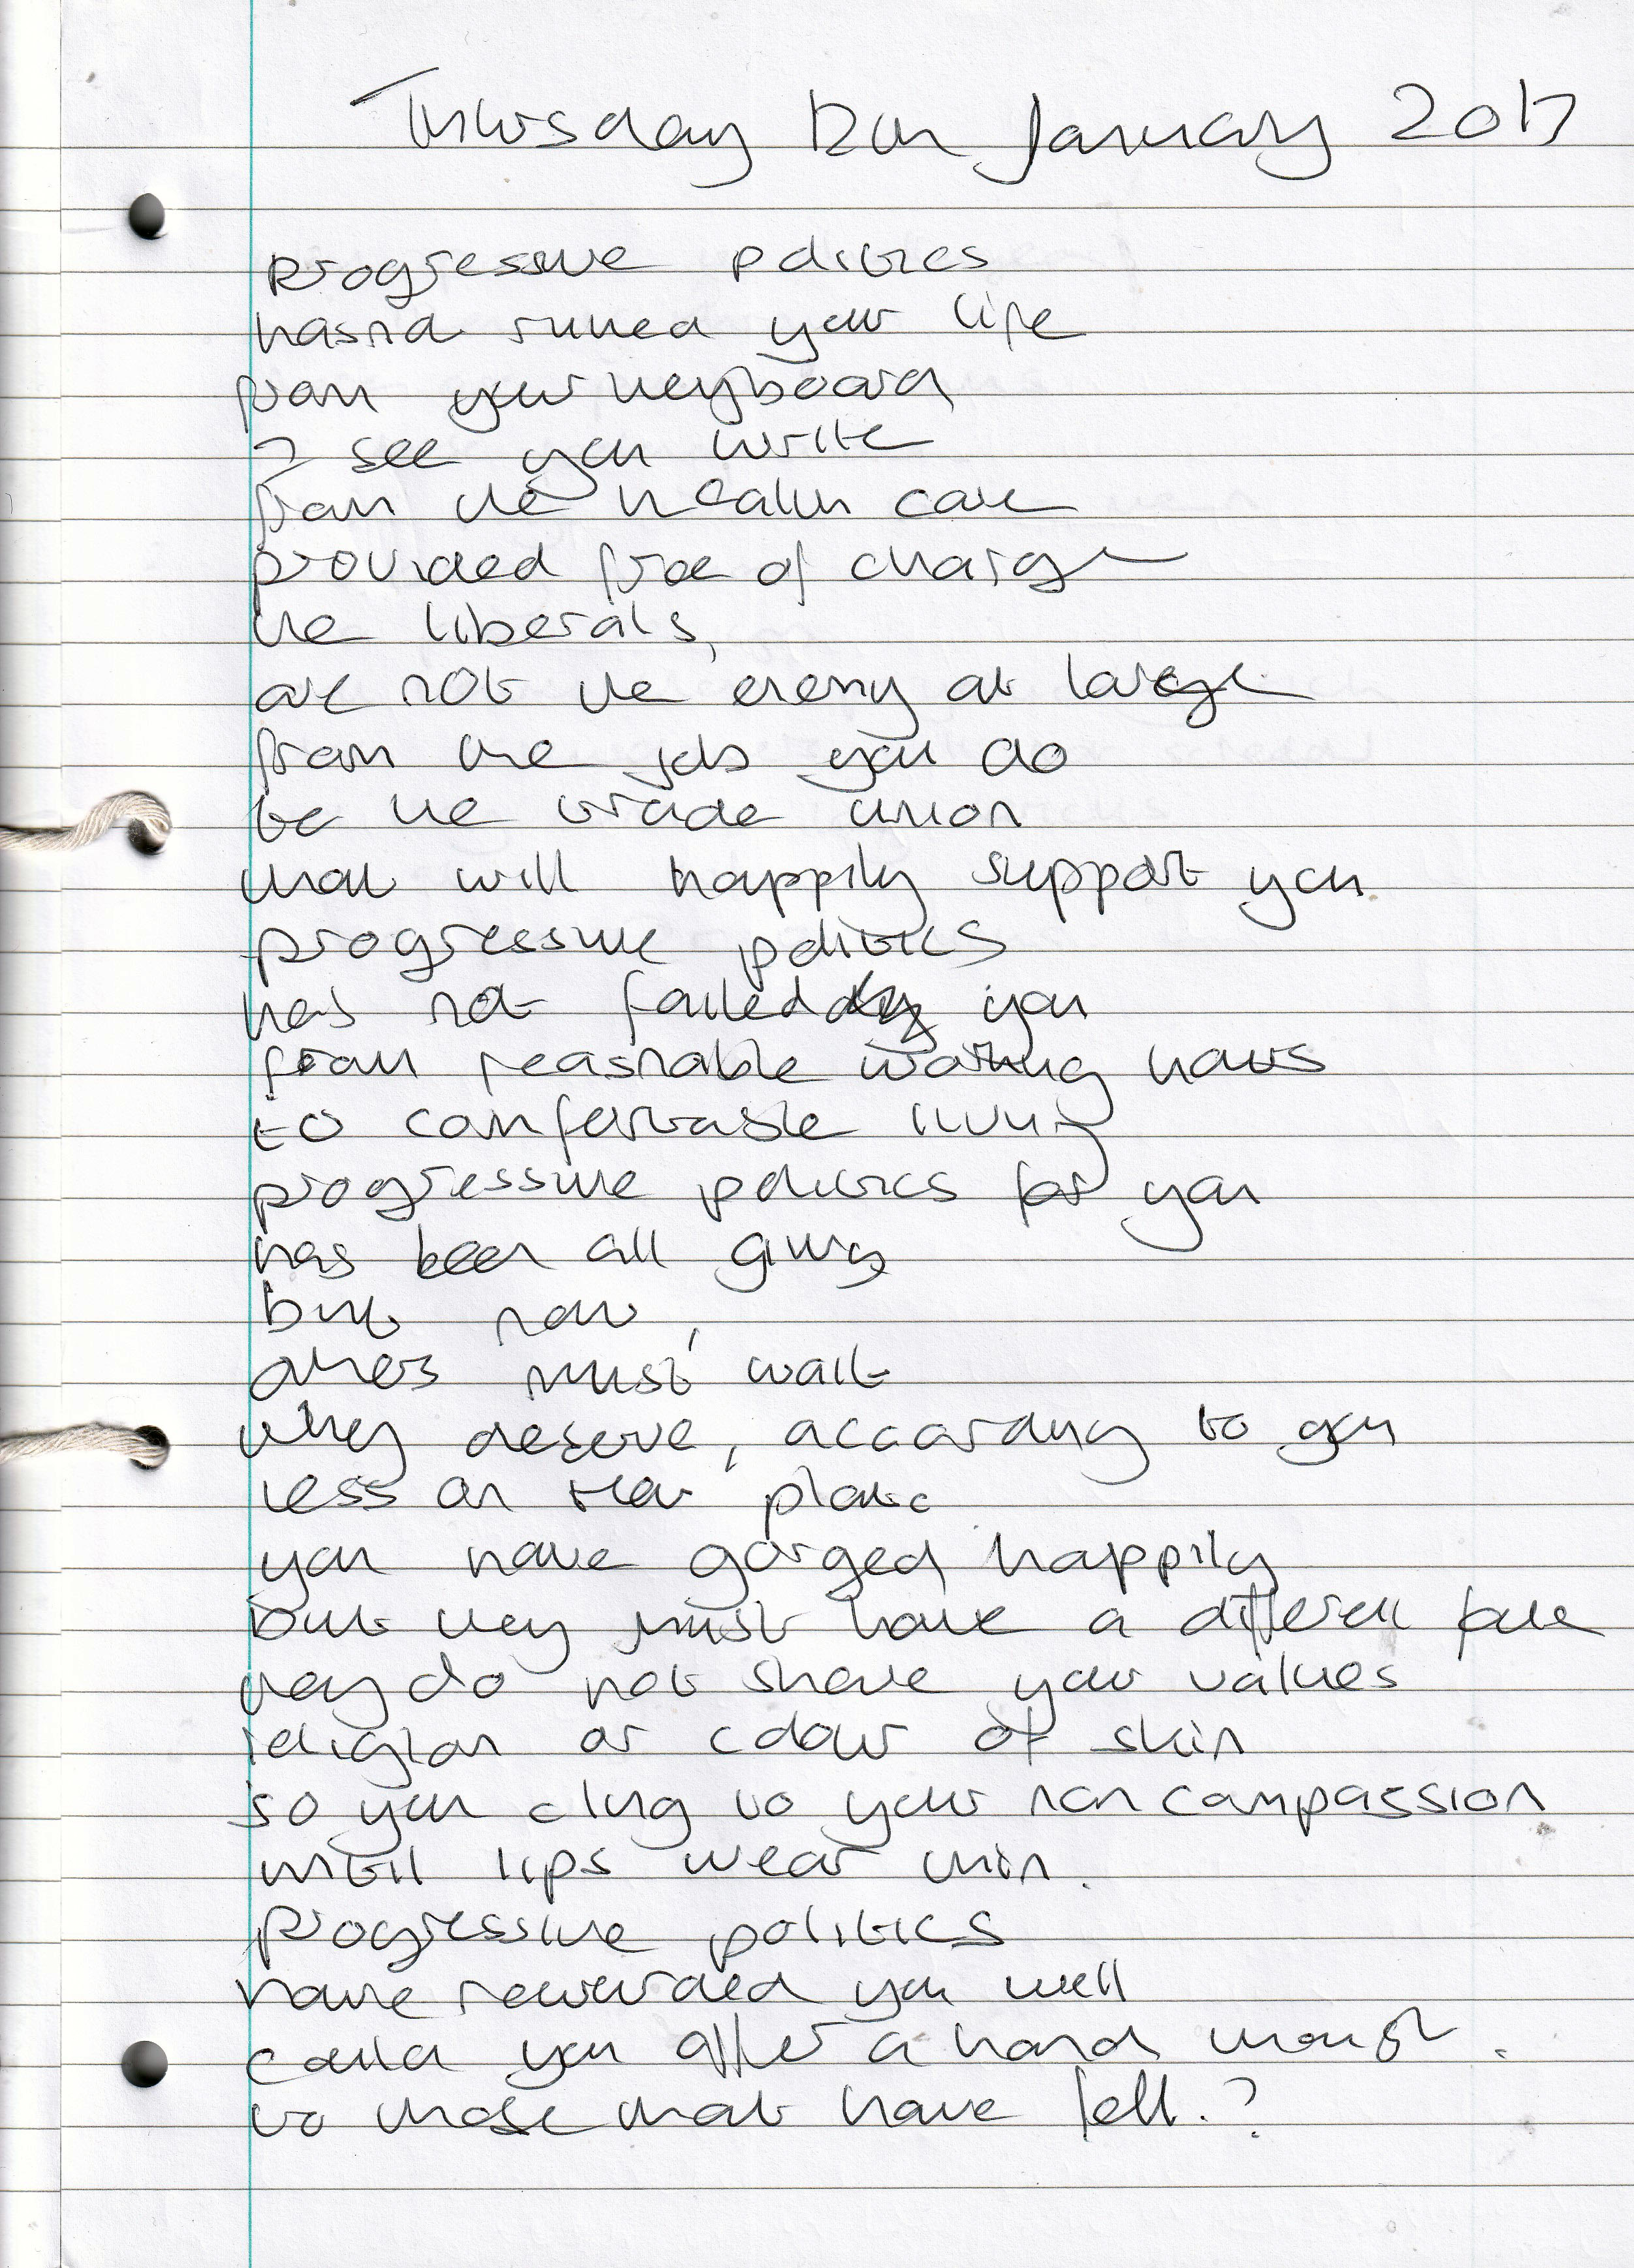 Thursday 12th January 2017
progressive politics
hasnt ruined your life
from your keyboard
I see you write
from the health care
provided free of charge
the liberals,
are not the enemy at large
from the jobs you do
to the trade union
that will happily support you
progressive politics
has not failed you
from reasonable working hours
to comfortable living
progressive politics for you
has been all giving
but now,
others must wait
they deserve, according to you
less on their plate
you have gorged happily
but they must have a different fate
they do not share your values
religion or colour of skin
so you cling to your non compassion
until lips wear thin.
progressive politics
have rewarded you well
could you offer a hand though.
to those that have fell.?